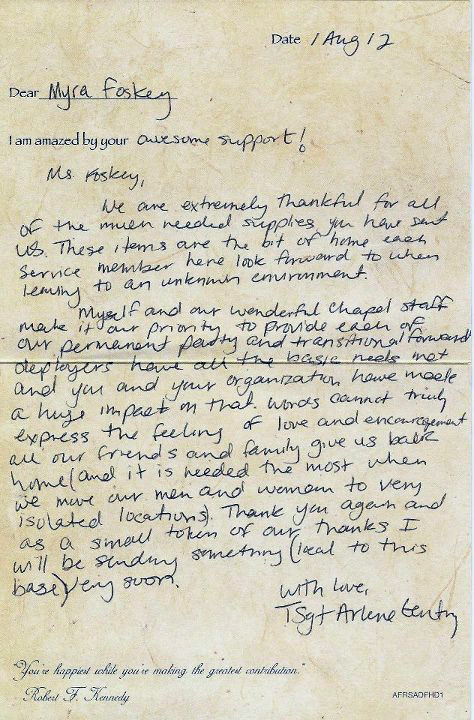 Date 1 Aug 12
Dear Myra Foskey
I am amazed by your awesome support!
Ms. Foskey,
We are extremely thankful for all
of the much needed supplies you have sent
us. These items are the bit of home each
service member here look forward to when
leaving to an unknown environment.
Myself and our wonderful Chapel staff
make it our priority to provide each of
our permanent party and transitional forward
deployers have all the basic needs met
and you and your organization have made
a huge impact on that. Words cannot truly
express the feeling of love and encouragement
all our friends and family give us back
home (and it is needed the most when
we move our men and woman to very
isolated locations). Thank you again and
as a small token of our thanks I
will be sending something (local to this
base) very soon.
With love,
TSgt Arlene Gentry
"You're happiest while you're making the greatest contribution."
Robert F. Kennedy
AFRSAOFHD1